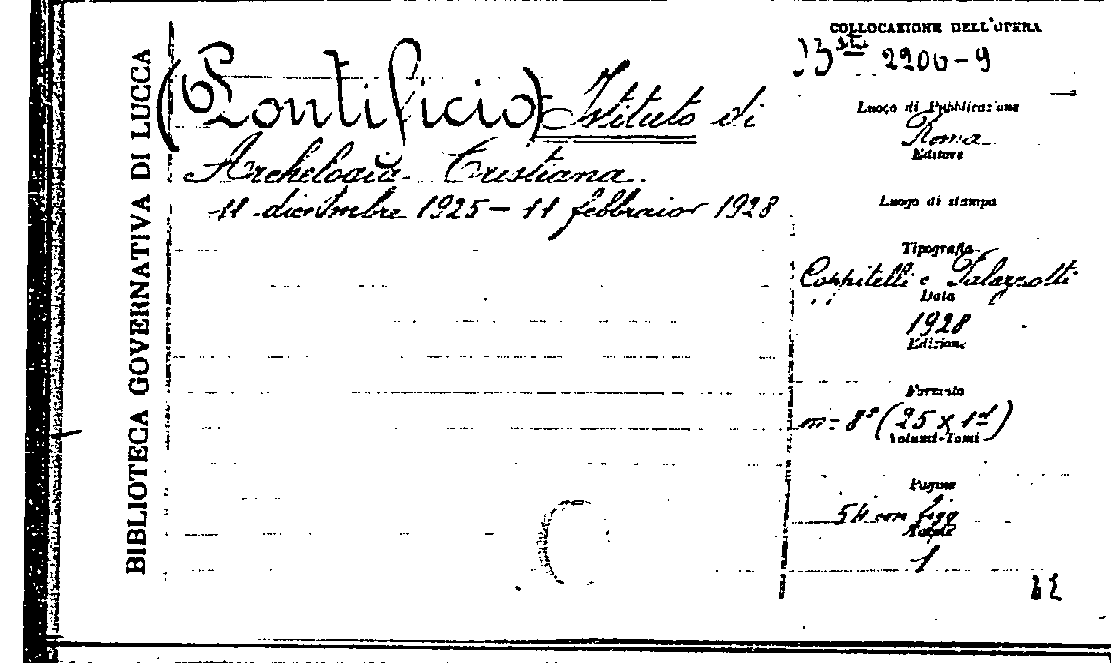 BIBLIOTECA GOVERNATIVA DI LUCCA
(Pontificio) Istituto di
Archelogia Cristiana.
11 dicembre 1925 - 11 febbraior 1928
COLLOCAZIONE DELL'OPERA
2200-9
Luogo di Pubblicazione
Roma
Editore
Luogo di stampa
Tipografia
Coppitelli e Palazzotti
Data
1928
Edizione
Formato
m= 8° (25 x 1
Volumi-Tomi
Pagine
54 con figg
1